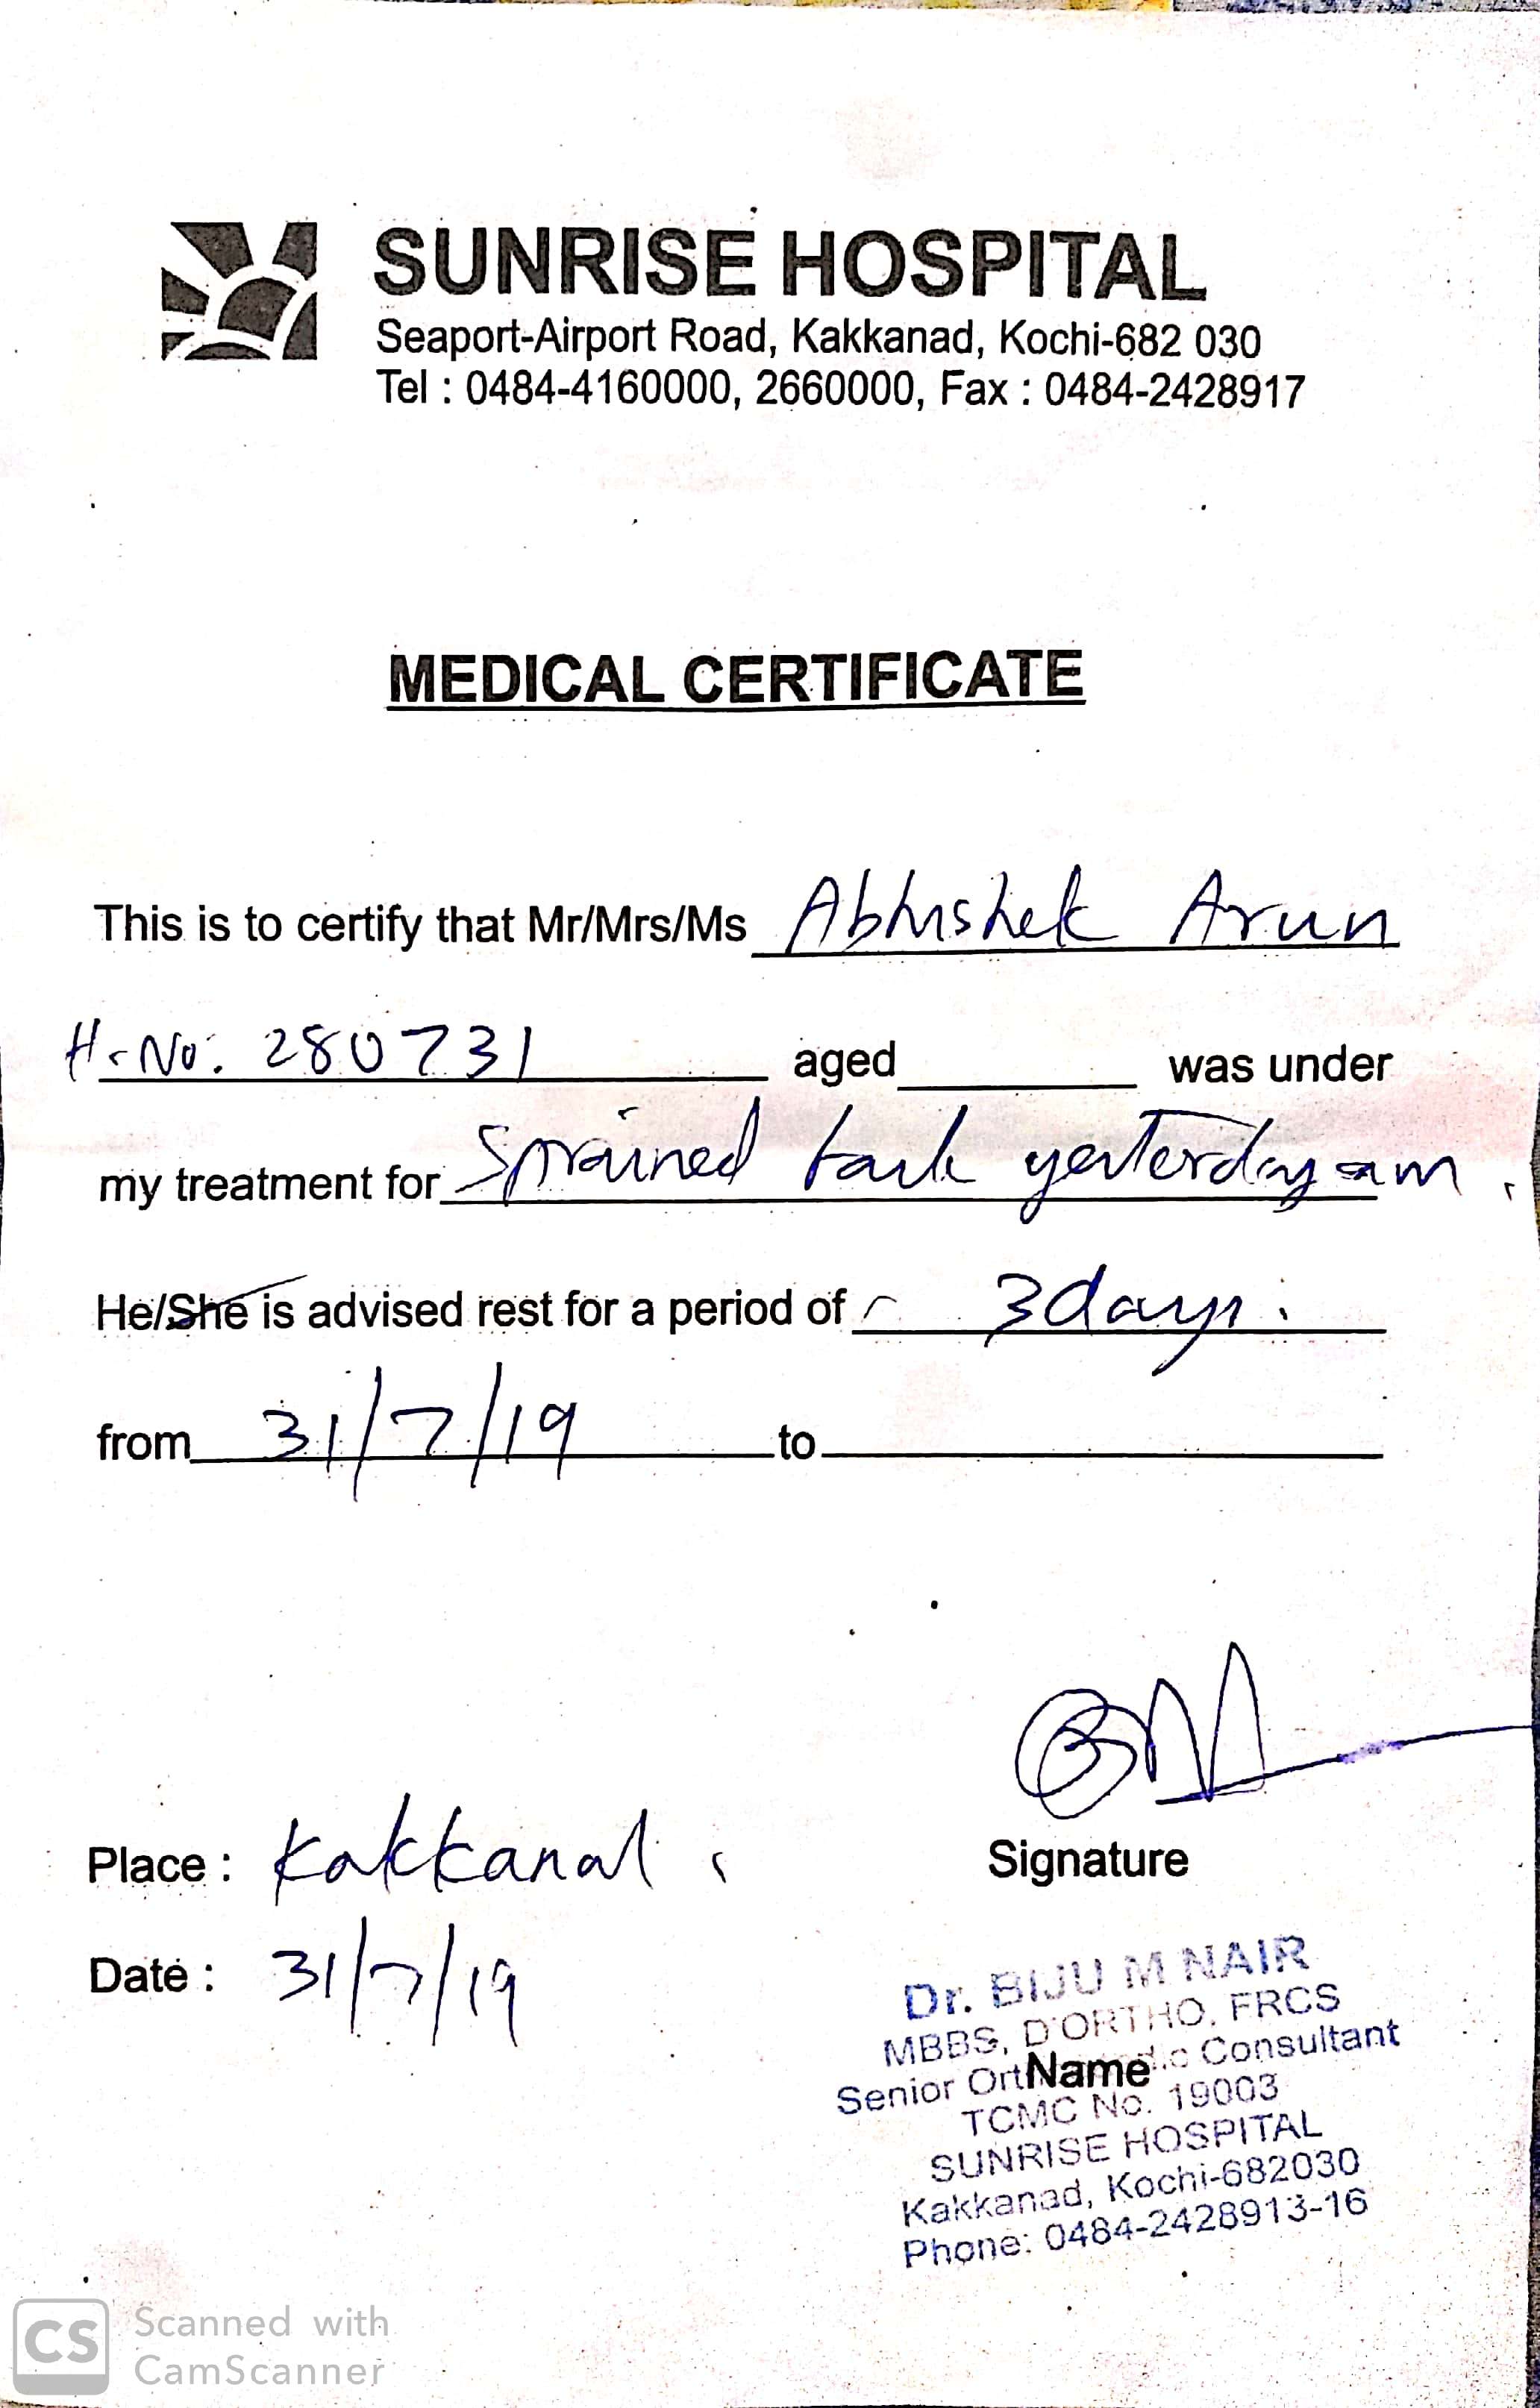 SUNRISE HOSPITAL
Seaport-Airport Road, Kakkanad, Kochi-682 030
Tel : 0484-4160000, 2660000, Fax : 0484-2428917
MEDICAL CERTIFICATE
This is to certify that Mr/Mrs/Ms Abhishek Arun
H.No. 280731 aged was under
my treatment for Sprained back yesterday am.
He/She is advised rest for a period of 3 days.
from 31/7/19 to
Signature
Place : Kakkanad
Date : 31/7/19
Dr. BIJU M NAIR
MBBS, D'ORTHO, FRCS
Senior Consultant
Name
TCMC No. 19003
SUNRISE HOSPITAL
Kakkanad, Kochi-682030
Phone: 0484-2428913-16
CS Scanned with
CamScanner